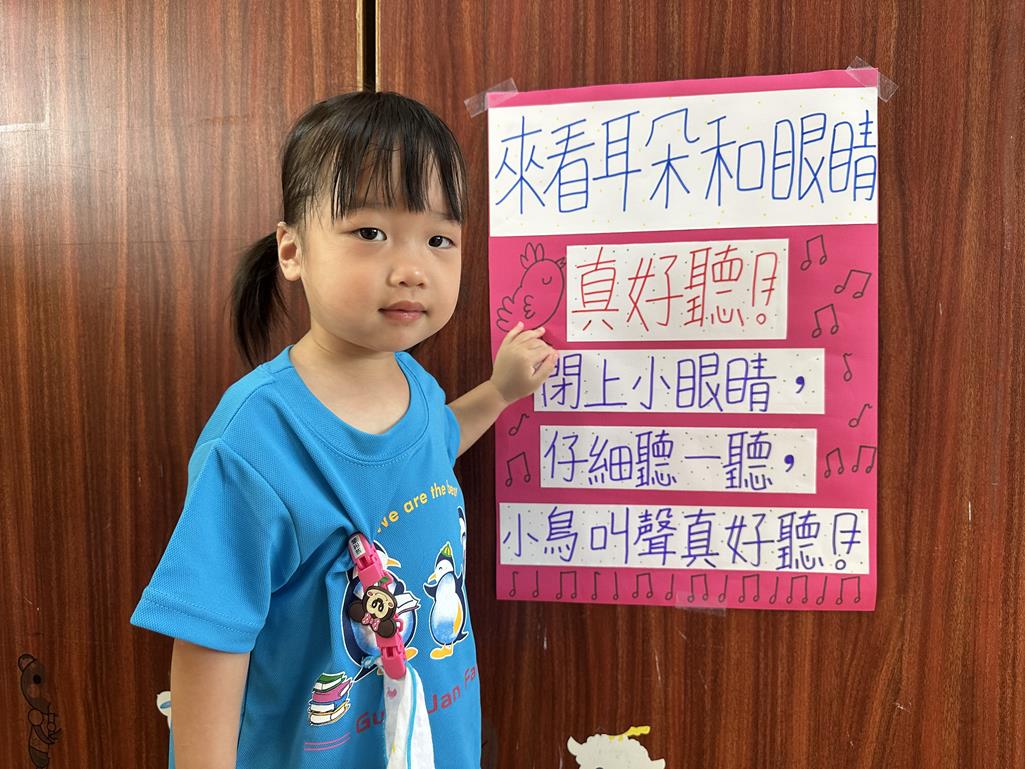 來看耳朵和眼睛
真好聽！
閉上小眼睛，
仔細聽一聽，
小鳥叫聲真好聽！
we are the best